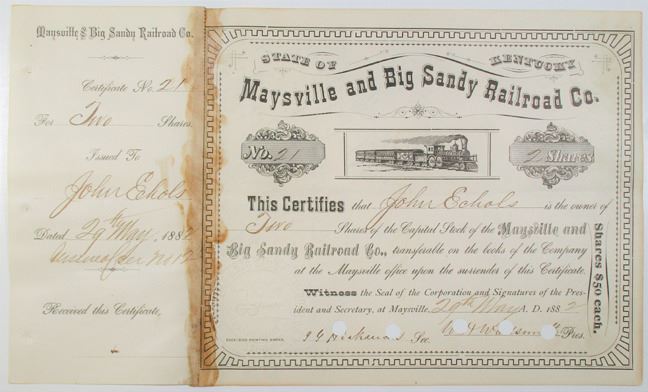 Maysville & Big Sandy Railroad Co.
Certificate No. 21
For Two Shares.
Issued To
John Echols
Dated 29th May, 1882
in lieu of Cer No 12
Received this Certificate,
STATE OF KENTUCKY
Maysville and Big Sandy Railroad Co.
No. 21
2 Shares
This Certifies that John Echols is the owner of
Two Shares of the Capital Stock of the Maysville and
Big Sandy Railroad Co., transferable on the books of the Company
at the Maysville office upon the surrender of this Certificate.
Witness the Seal of the Corporation and Signatures of the Pres-
ident and Secretary, at Maysville, 29th May A. D. 1882
Sec. Pres.
Shares $50 each.